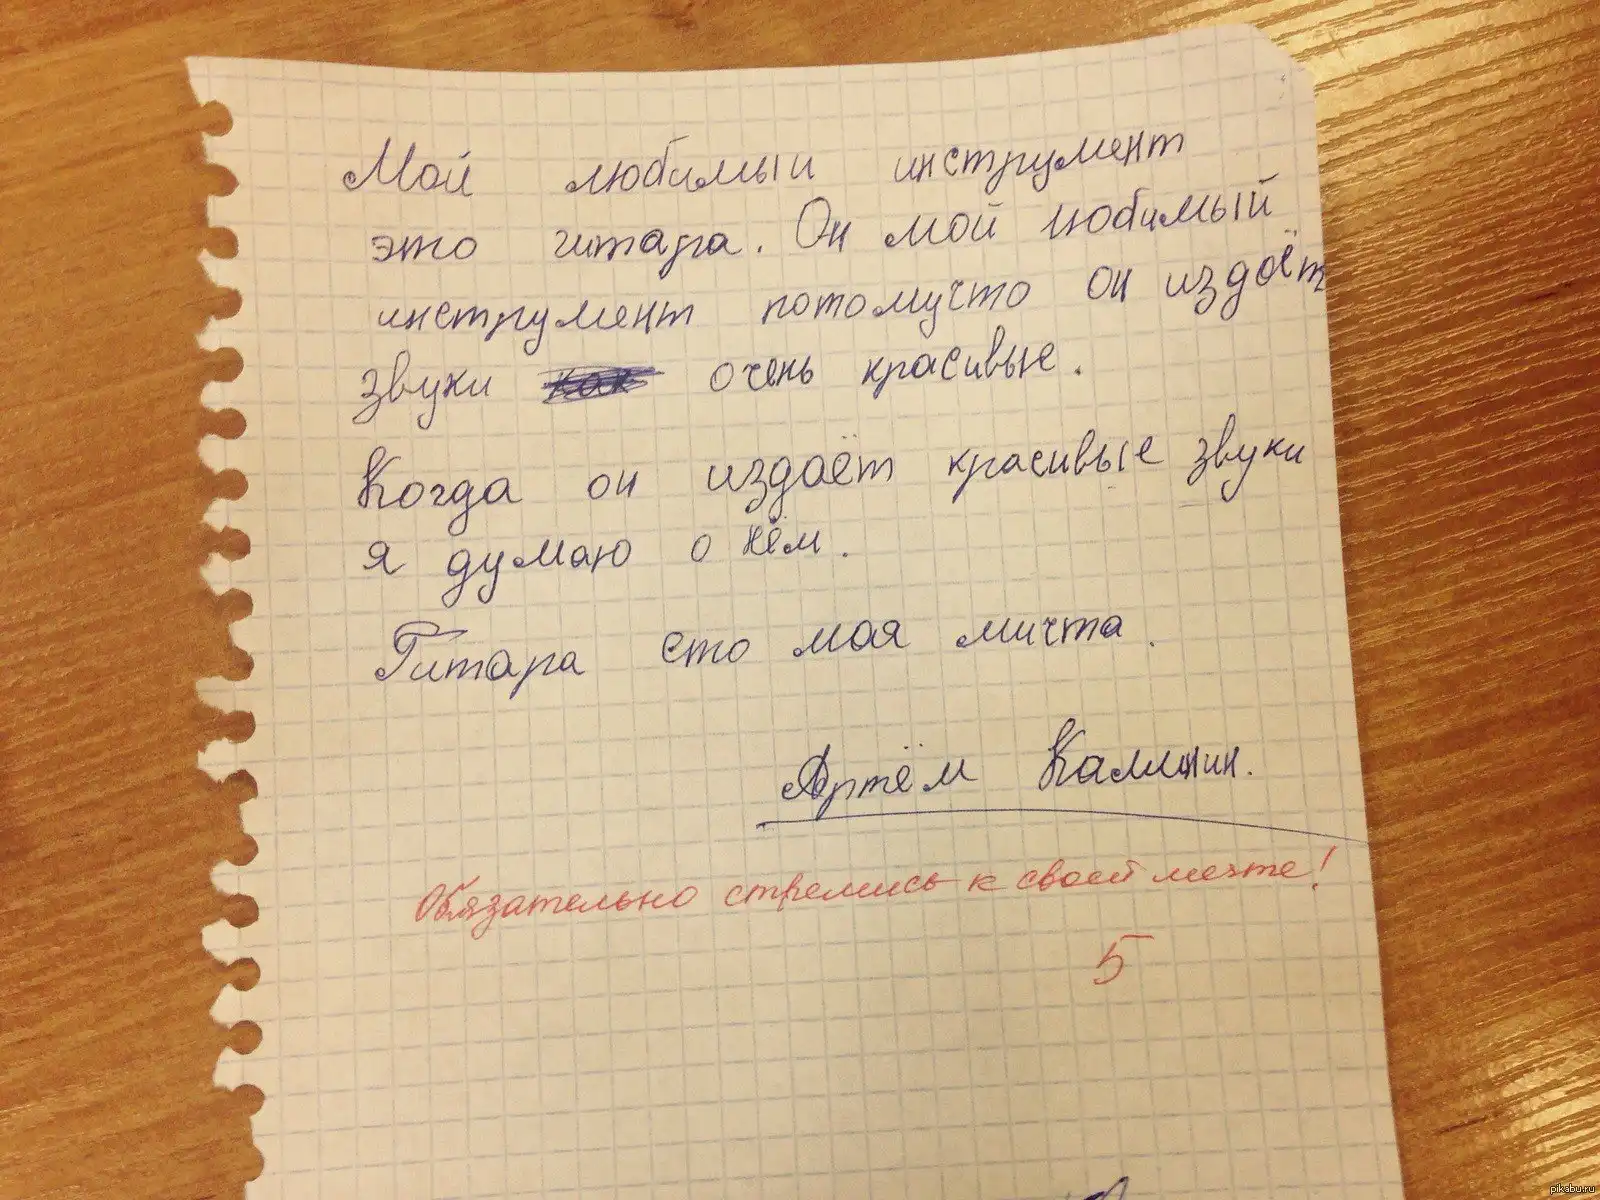 Мой любимыи инструмент
это гитара. Он мой любимый
инструмент потомучто он издаёт
звуки очень красивые.
Когда он издаёт красивые звуки
я думаю о нём.
Гитара ето моя мичта.
Артём Калинин.
Обязательно стремись к своей мечте!
5
pikabu.ru